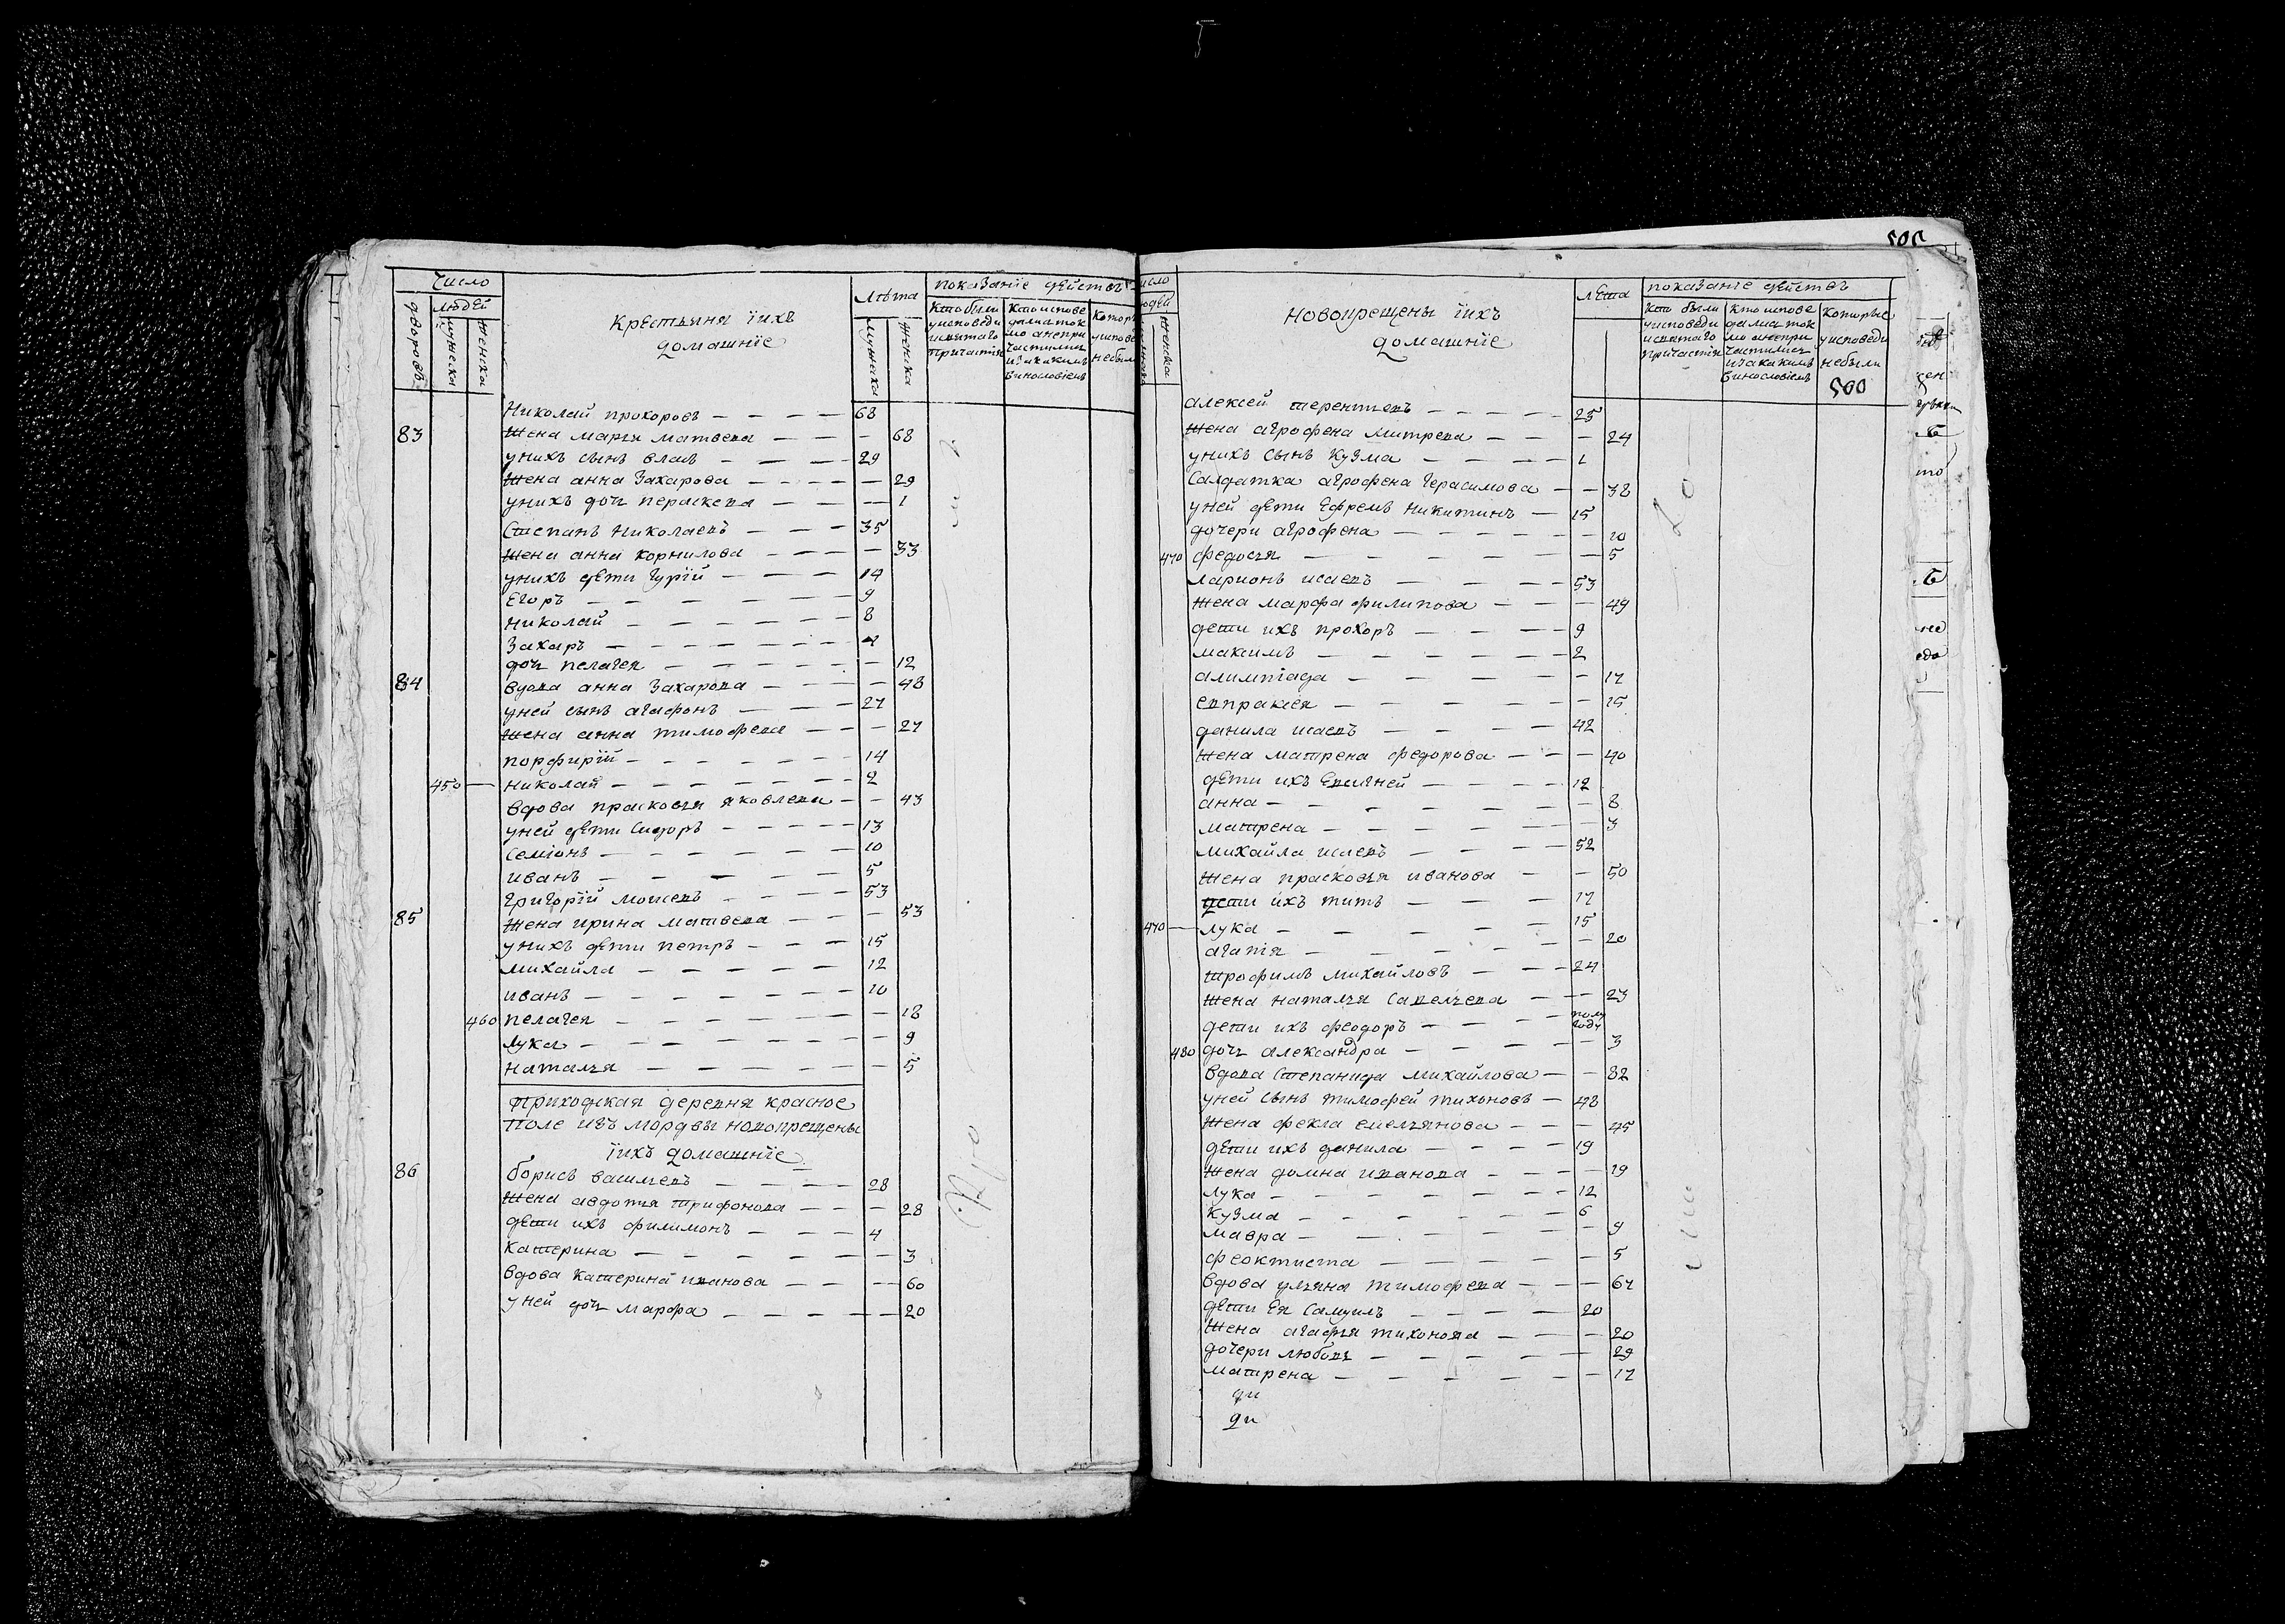 Число
людей
дворовъ
мужеска
женска
Крестьяня їихъ
домашнїе
Лѣта
мужска
женска
показанїе действъ
Кто были
уисповеди
исвятаго
причастїя
Кто испове
дался ток
мо анепри
частился
изакакимъ
винословїемъ
Которые
уиспове
небыли
Николай прохоровъ — — — — 68
83 жена марья матвева — — — 68
унихъ сынъ власъ — — — 29
жена анна Захарова — — — — — 29
унихъ дочь пераскева — — — 1
Степанъ Николаевъ — — — 35
жена анна корнилова — — — — 33
унихъ дети гурїй — — — 14
Егоръ — — — — — 9
николай — — — — — 8
Захаръ — — — — — — 4
дочь пелагея — — — — — 12
84 вдова анна Захарова — — — 48
уней сынъ агафонъ — — — 27
жена анна тимофева — — — 27
порфирїй — — — — — — 14
450 — николай — — — — — — 2
вдова прасковья яковлева — — 43
уней дети Сидоръ — — — — — 13
Семїонъ — — — — — — 10
иванъ — — — — — 5
григорїй моисевъ — — — — 53
85 жена ирина матвева — — — 53
унихъ дети петръ — — — 15
михайла — — — — — — 12
иванъ — — — — — — — 10
460 пелагея — — — — — — — 18
Лукея — — — — — — — 9
наталья — — — — — — 5
приходская деревня красное
поле изъ мордвы новокрещены
їихъ домашнїе
86 борисъ васильевъ — — — — 28
жена авдотья трифонова — — — 28
дети ихъ филимонъ — — — 4
катерина — — — — — — 3
вдова катерина иванова — — — 60
уней дочь марфа — — — — — 20
число
людей
мужеска
женска
новокрещены їихъ
домашнїе
лета
показанїе действъ
кто были
уисповеди
исвятаго
причастїя
кто испове
дался ток
мо анепри
частился
изакакимъ
винословїемъ
которые
уисповеди
небыли
500
алексей терентьевъ — — — — 25
жена агрофена митрева — — — 24
унихъ сынъ Кузма — — — — 1
Салдатка агрофена герасимова — — 38
уней дети Ефремъ никитинъ — 15
дочери агрофена — — — — — — 10
470 федосья — — — — — — 5
ларионъ исаевъ — — — — 53
жена марфа филипова — — — 49
дети ихъ прохоръ — — — — 9
максимъ — — — — — — 2
алимпїада — — — — — 17
евпраксея — — — — — — 15
данила исаевъ — — — — 42
жена матрена федорова — — — 40
дети ихъ Евсигней — — — — 12
анна — — — — — — — 8
матрена — — — — — — 3
михайла исаевъ — — — — 52
жена прасковья иванова — — 50
дети ихъ титъ — — — 17
470 — лука — — — — — — 15
агапїя — — — — — — 20
трофимъ михайловъ — — — 24
жена наталья Савельева — — — 23
дети ихъ феодоръ — — — — полу году
480 дочь александра — — — — — 3
вдова Степанида михайлова — — 82
уней сынъ тимофей тихоновъ — 48
жена фекла емельянова — — — 45
дети ихъ данила — — — — 19
жена домна иванова — — — — 19
лука — — — — — — — 12
Кузма — — — — — — 6
мавра — — — — — — 9
феоктиста — — — — — — 5
вдова ульяна тимофева — — — 67
дети Ея Самуилъ — — — — — 20
жена агафья тихонова — — — 20
дочери любовь — — — — — — 29
матрена — — — — — — — 17